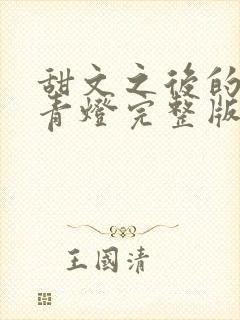 甜文之後的
青燈完整版
王國清